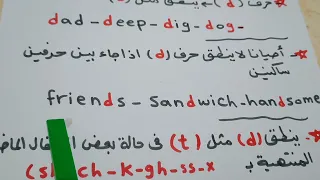 حرف (d) ينطق مثل (د)
dad - deep - dig - dog -
* أحيانا لا ينطق حرف (d) اذا جاء بين حرفين
ساكنين
friends - sandwich - handsome
* ينطق (d) مثل (t) في حالة بعض الماض
المنتهية ب (sh - ch - k - gh - ss - x